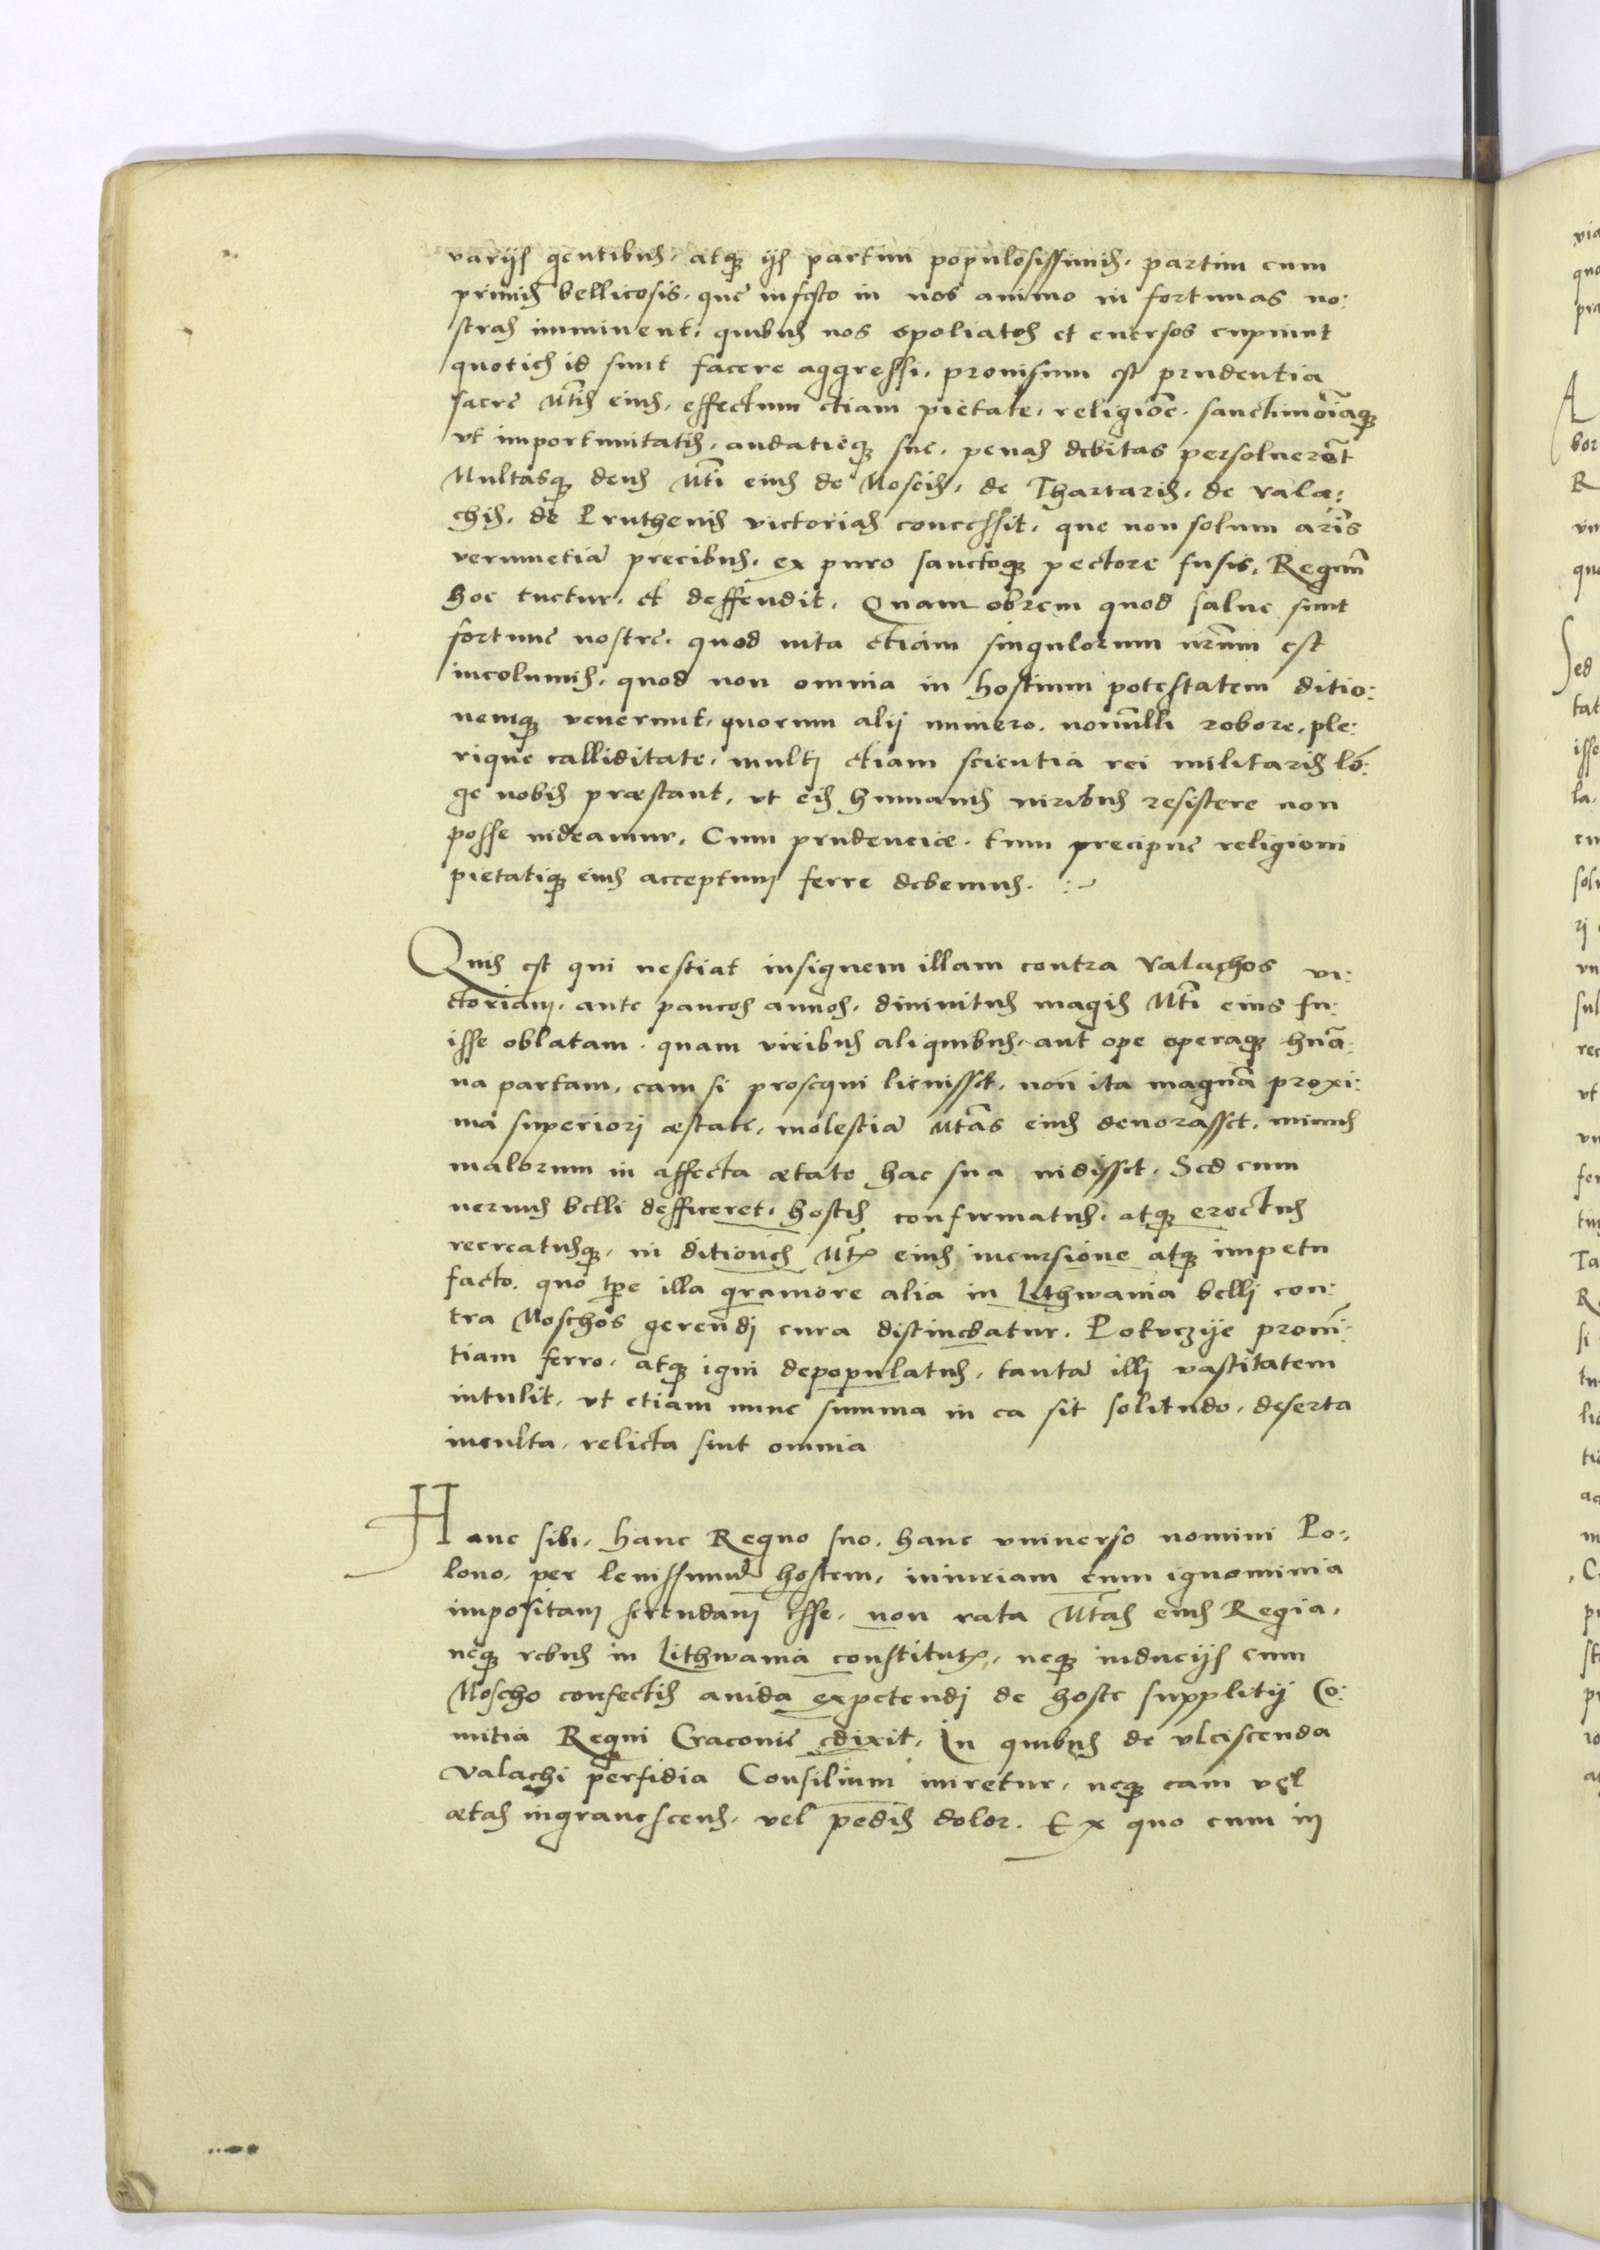 varijs gentibus, atq3 ijs partim populosissimis, partim cum
primis bellicosis, que infesto in nos animo in fortunas no:
stras imminent, quibus nos spoliatos et euersos cupiunt
quoties id sunt facere aggressi, prouisum est prudentia
sacre Mtis eius, effectum etiam pietate, religiõe, sanctimoĩaq3
vt importunitatis, audatieq3 sue, penas debitas persoluerẽt
Multasq3 deus Mti eius de Moscis, de Thartaris, de vala:
chis, de Pruthenis victorias concessit, que non solum armis
verumetiã precibus, ex puro sanctoq3 pectore fusis, Regnũ
hoc tuetur, et deffendit, Quam obrem quod salue sunt
fortune nostre, quod uita etiam singulorum nrũm est
incolumis, quod non omnia in hostium potestatem ditio:
nemq3 venerunt, quorum alij numero, nonnulli robore, ple:
rique calliditate, multj etiam scientia rei militaris lõ:
ge nobis præstant, vt eis humanis uiribus resistere non
posse uideamur, Cum prudenciæ, tum precipue religioni
pietatiq3 eius acceptum ferre debemus.
Quis est qui nestiat insignem illam contra Valachos vi:
ctoriam, ante paucos annos, diuinitus magis Mti eius fu:
isse oblatam, quam viribus aliquibus, aut ope operaq3 humã:
na partam, eam si prosequi licuisset, non ita magnã proxi:
ma superiori æstate, molestiã Mtas eius deuorasset, minus
malorum in affecta ætate hac sua uidisset, Sed cum
neruus belli defficeret, hostis confirmatus, atq3 erectus
recreatusq3, in ditiones Mtis eius incursione atq3 impetu
facto, quo tpe illa graviore alia in Lithwania belli con:
tra Moschos gerendj cura distinebatur, Pokvczije prouin:
tiam ferro, atq3 igni depopulatus, tantã illj vastitatem
intulit, vt etiam nunc summa in ea sit solitudo, deserta
inculta, relicta sint omnia
Hanc sibi, hanc Regno suo, hanc vniuerso nomini Po:
lono, per leuissimũ hostem, iniuriam cum ignominia
impositam ferendam esse, non rata Mtas eius Regia,
neq3 rebus in Lithwania constitutis, neq3 induciys cum
Moscho confectis auida expetendj de hoste supplitij Co:
mitia Regni Cracouie edixit, In quibus de vlciscenda
Valachi perfidia Consilium iniretur, neq3 eam vel
ætas ingrauescens, vel pedis dolor. Ex quo cum in